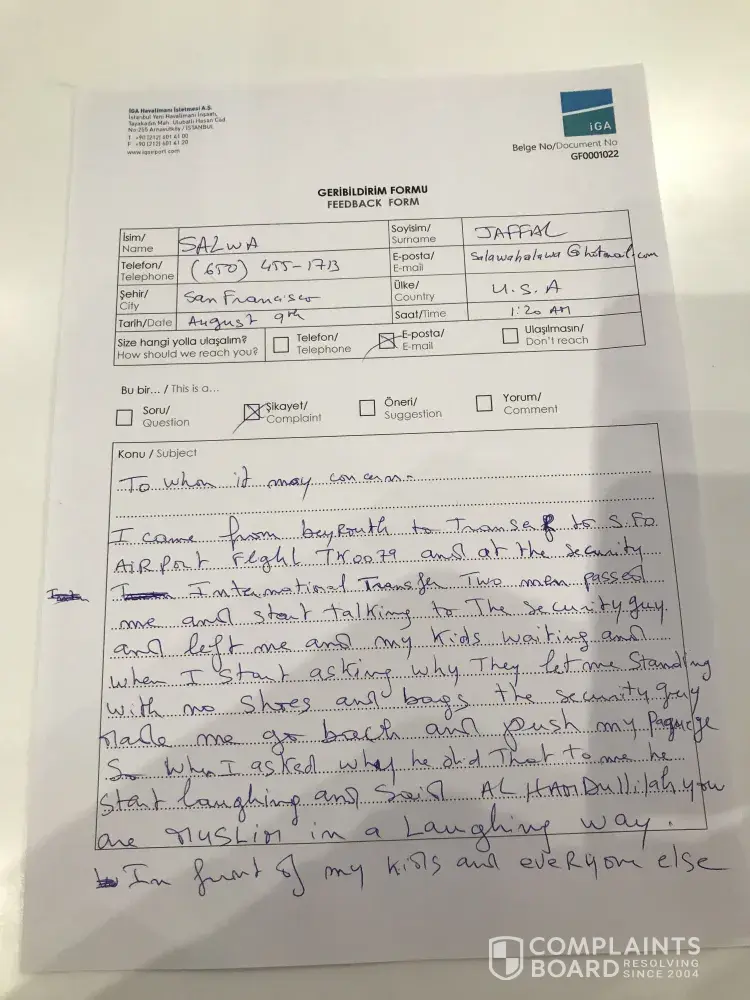 İGA Havalimanı İşletmesi A.Ş.
İstanbul Yeni Havalimanı İnşaatı,
Tayakadın Mah. Ulubatlı Hasan Cad.
No:255 Arnavutköy / İSTANBUL
T +90 (212) 601 41 00
F +90 (212) 601 41 20
www.igairport.com
iGA
Belge No/Document No
GF0001022
GERİBİLDİRİM FORMU
FEEDBACK FORM
İsim/
Name
SALWA
Soyisim/
Surname
JAFFAL
Telefon/
Telephone
(650) 455-1713
E-posta/
E-mail
Salawahalawa@hotmail.com
Şehir/
City
San Francisco
Ülke/
Country
U.S.A
Tarih/Date
August 9th
Saat/Time
1:20 AM
Size hangi yolla ulaşalım?
How should we reach you?
Telefon/
Telephone
E-posta/
E-mail
Ulaşılmasın/
Don't reach
Bu bir... / This is a...
Soru/
Question
Şikayet/
Complaint
Öneri/
Suggestion
Yorum/
Comment
Konu / Subject
To whom it may concern-
I came from beyrouth to Transef to S.FO.
AIRPort Flght TK0079 and at the security
International Transfer Two men passed
me and start talking to The security guy
and left me and my kids waiting and
when I start asking why They let me Standing
with no shoes and bags the security guy
Made me go back and push my Paquege
So when I asked why he did That to me he
start laughing and Said ALHAMDullilah you
are MUSLIM in a Laughing way.
In front of my kids and everyone else
COMPLAINTS
BOARD RESOLVING
SINCE 2004